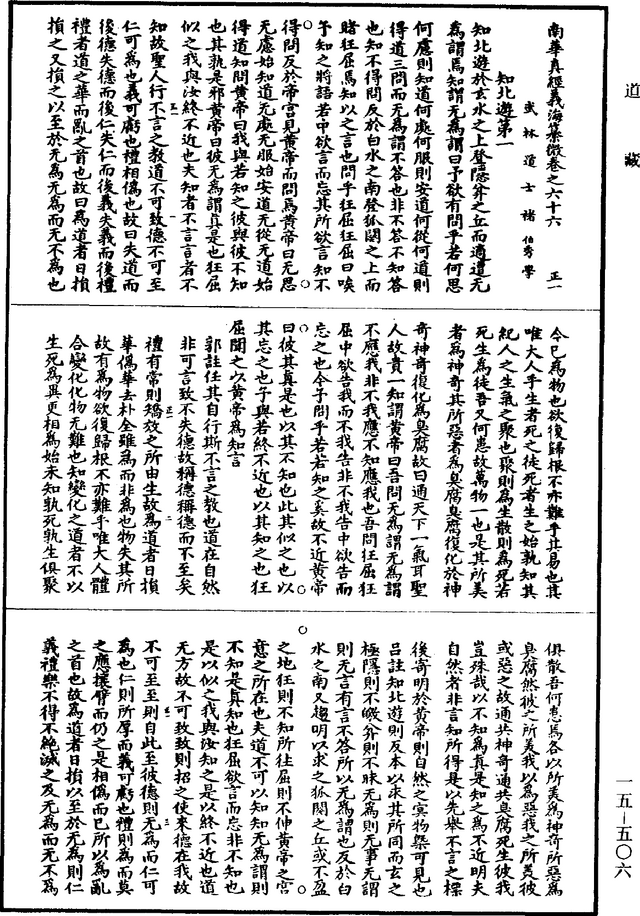 道藏
南華真經義海纂微卷之六十六 正一
武林道士褚伯秀學
知北遊第一
知北遊於玄水之上登隱弅之丘而適遭无
為謂焉知謂无為謂曰予欲有問乎若何思
何慮則知道何處何服則安道何從何道則
得道三問而无為謂不答也非不答不知答
也知不得問反於白水之南登狐闋之上而
睹狂屈焉知以之言也問乎狂屈狂屈曰唉
予知之將語若中欲言而忘其所欲言知不
得問反於帝宮見黃帝而問焉黃帝曰无思
无慮始知道无處无服始安道无從无道始
得道知問黃帝曰我與若知之彼與彼不知
也其孰是邪黃帝曰彼无為謂真是也狂屈
似之我與汝終不近也夫知者不言言者不
知故聖人行不言之教道不可致德不可至
仁可為也義可虧也禮相偽也故曰失道而
後德失德而後仁失仁而後義失義而後禮
禮者道之華而亂之首也故曰為道者日損
損之又損之以至於无為无為而无不為也
今已為物也欲復歸根不亦難乎其易也其
唯大人乎生者死之徒死者生之始孰知其
紀人之生氣之聚也聚則為生散則為死若
死生為徒吾又何患故萬物一也是其所美
者為神奇其所惡者為臭腐臭腐復化於神
奇神奇復化為臭腐故曰通天下一氣耳聖
人故貴一知謂黃帝曰吾問无為謂无為謂
不應我非不我應不知應我也吾問狂屈狂
屈中欲告我而不我告非不我告中欲告而
忘之也今予問乎若若知之奚故不近黃帝
曰彼其真是也以其不知也此其似之也以
其忘之也予與若終不近也以其知之也狂
屈聞之以黃帝為知言
郭註任其自行斯不言之教也道在自然
非可言致不失德故稱德稱德而不至矣
禮有常則矯效之所由生故為道者日損
華偽華去朴全雖為而非為也物失其所
故有為物欲復歸根不亦難乎唯大人體
合變化化物无難也知變化之道者不以
生死為異更相為始未知孰死孰生俱聚
俱散吾何患焉各以所美為神奇所惡為
臭腐然彼之所美我以為惡我之所美彼
或惡之故通共神奇通共臭腐死生彼我
豈殊哉以不知為真是知之為不近明夫
自然者非言知所得是以先舉不言之標
後寄明於黃帝則自然之冥物槩可見也
呂註知北遊則反本以求其所同而玄之
極隱則不皦弅則不昧无為則无事无謂
則无言有言不答所以无為謂也反於白
水之南又趨明以求之狐闋之丘或不盈
之地狂則不知所往屈則不伸黃帝之宮
意之所在也夫道不可以知知无為謂則
不知是真知也狂屈欲言而忘非不知也
是以似之我與汝知之是以終不近也道
无方故不可致致則招之使來德在我故
不可至至則自此至彼德則无為而仁可
為也仁則所厚而義可虧也禮則為而莫
之應攘臂而仍之是相偽而已所以為亂
之首也故為道者日損以至於无為則仁
義禮樂不得不絕滅之及无為而无不為
一五－五〇六